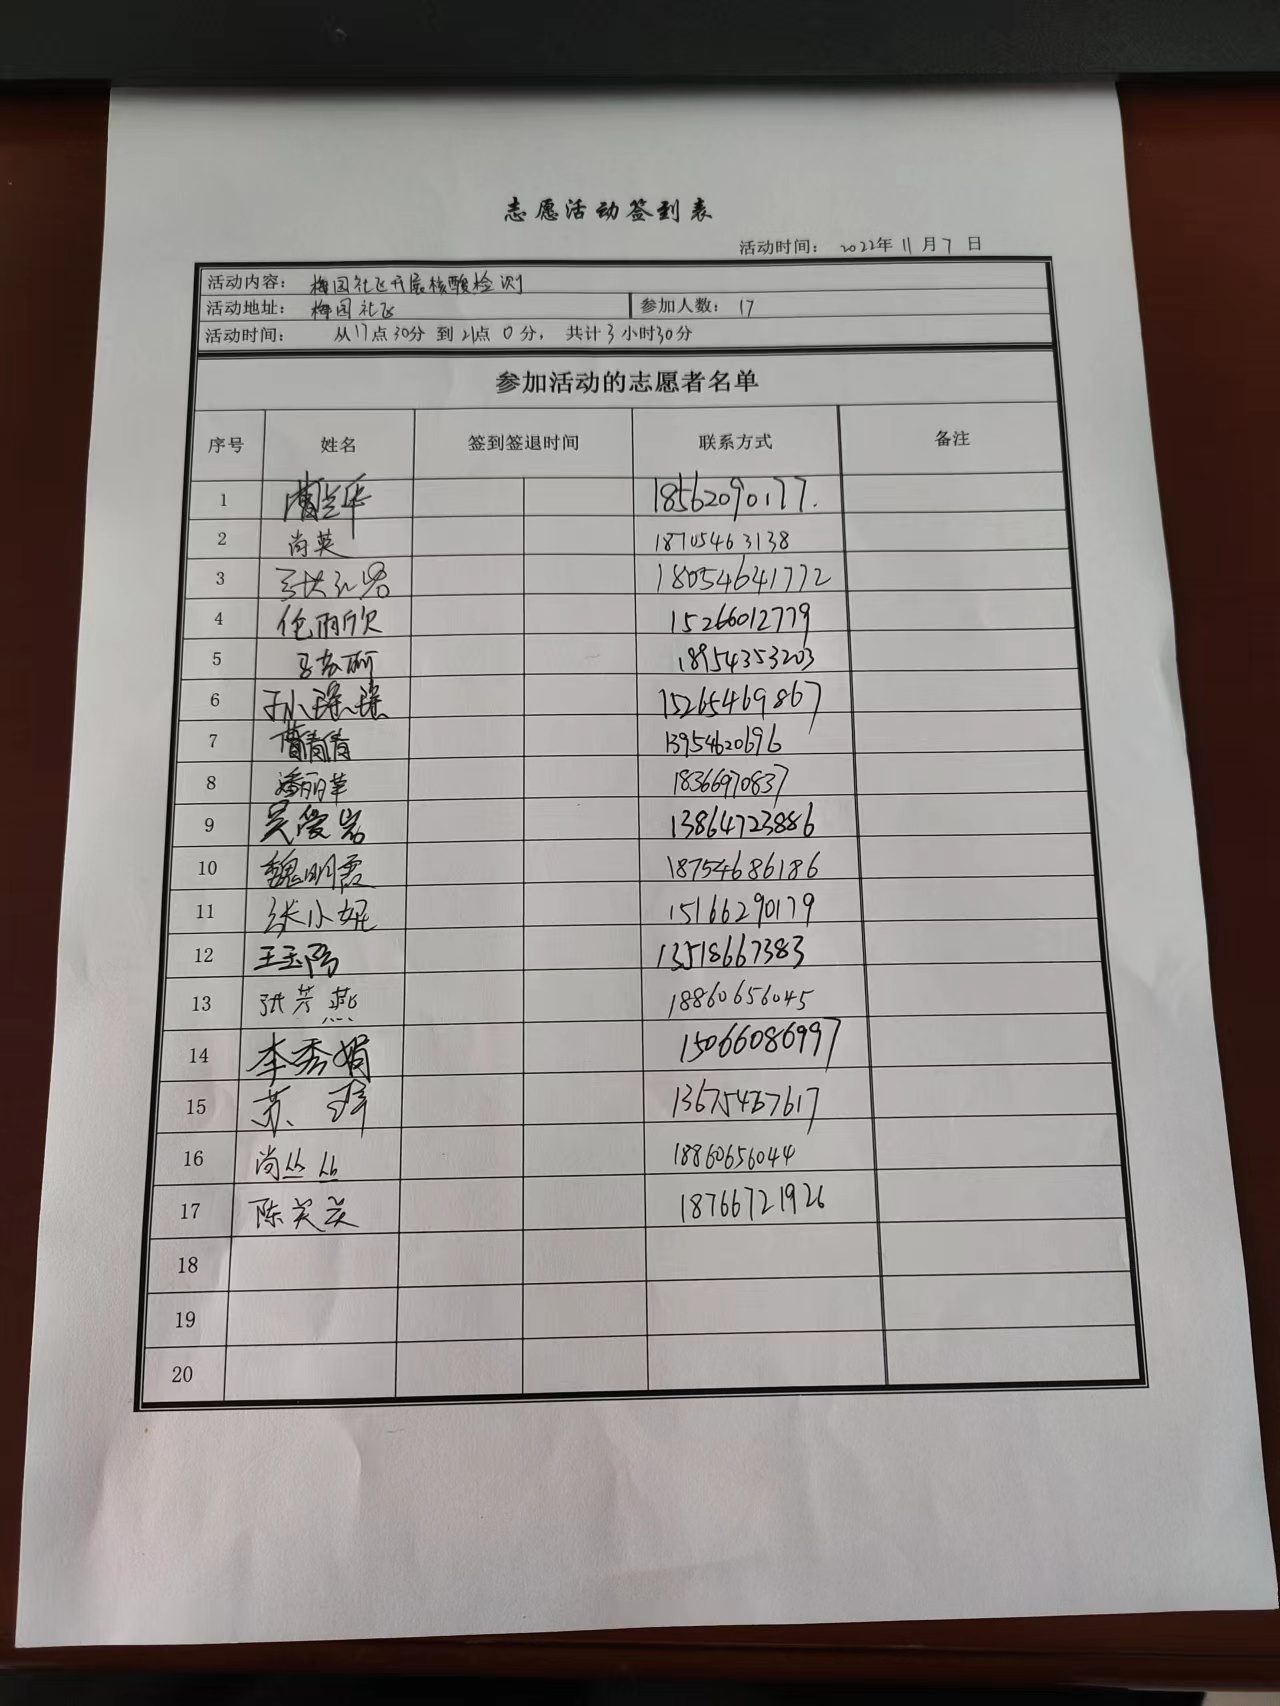 志愿活动签到表
活动时间： 2022年 11月 7日
活动内容： 梅园社区开展核酸检测
活动地址： 梅园社区 参加人数： 17
活动时间： 从17点30分 到 21点 0分， 共计3小时30分
参加活动的志愿者名单
序号 姓名 签到签退时间 联系方式 备注
1 18562090177.
2 尚英 18705463138
3 18054641772
4 15266012779
5 18954353203
6 孙瑶瑶 15265469867
7 曹倩倩 13954620696
8 潘丽苹 18366970837
9 吴爱岩 13864723886
10 魏明霞 18754686186
11 张小妮 15166290179
12 王玉陪 13518667383
13 张芳燕 18860656045
14 李秀娟 15066086997
15 苏 13675467617
16 尚丛丛 18860656044
17 陈英英 18766721926
18
19
20